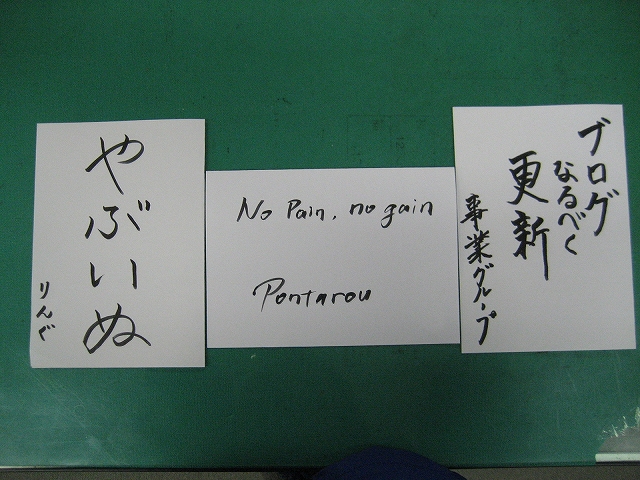 やぶいぬ
りんぐ
No Pain, no gain
Pontarou
ブログ
なるべく
更新
事業グループ